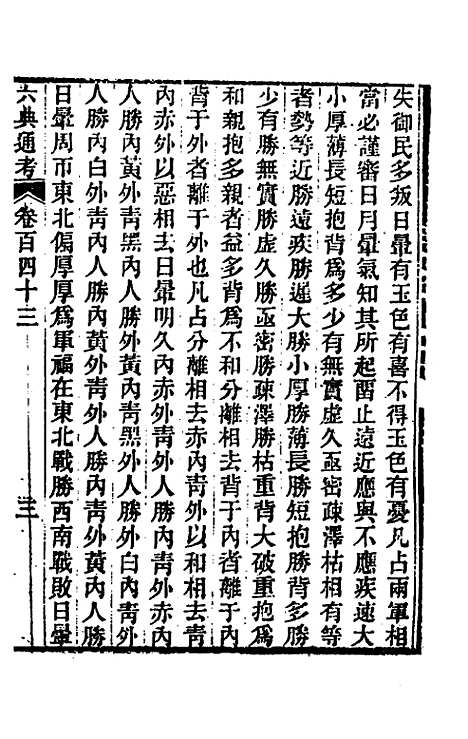 失御民多叛日暈有玉色有喜不得玉色有憂凡占兩軍相
當必謹審日月暈氣知其所起畱止遠近應與不應疾遲大
小厚薄長短抱背爲多少有無實虛久亟密疎澤枯相有等
者勢等近勝遠疾勝遲大勝小厚勝薄長勝短抱勝背多勝
少有勝無實勝虛久勝亟密勝疎澤勝枯重背大破重抱爲
和親抱多親者益多背爲不和分離相去背于內者離于內
背于外者離于外也凡占分離相去赤內靑外以和相去靑
內赤外以惡相去日暈明久內赤外靑外人勝內靑外赤內
人勝內黃外靑黑內人勝外黃內靑黑外人勝外白內靑外
人勝內白外靑內人勝內黃外靑外人勝內靑外黃內人勝
日暈周帀東北偏厚厚爲軍福在東北戰勝西南戰敗日暈
六典通考
卷百四十三
三